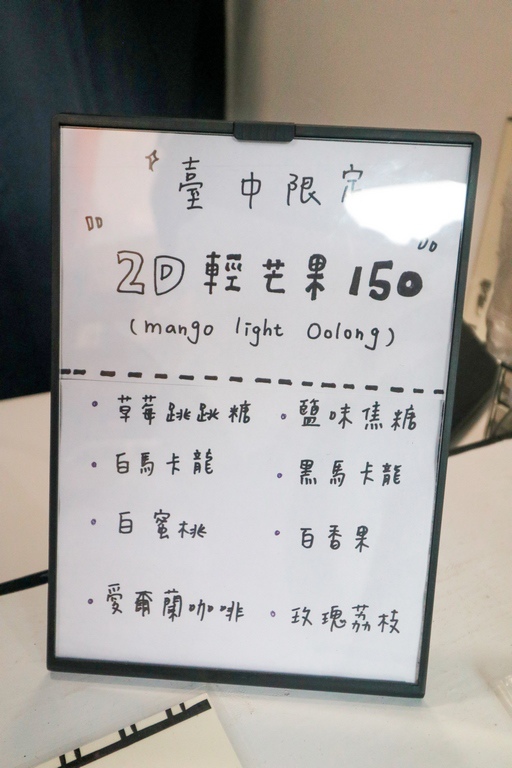 臺中限定
2D輕芒果150
(mango light Oolong)
・草莓跳跳糖 ・鹽味焦糖
・白馬卡龍 ・黑馬卡龍
・白蜜桃 ・百香果
・愛爾蘭咖啡 ・玫瑰荔枝